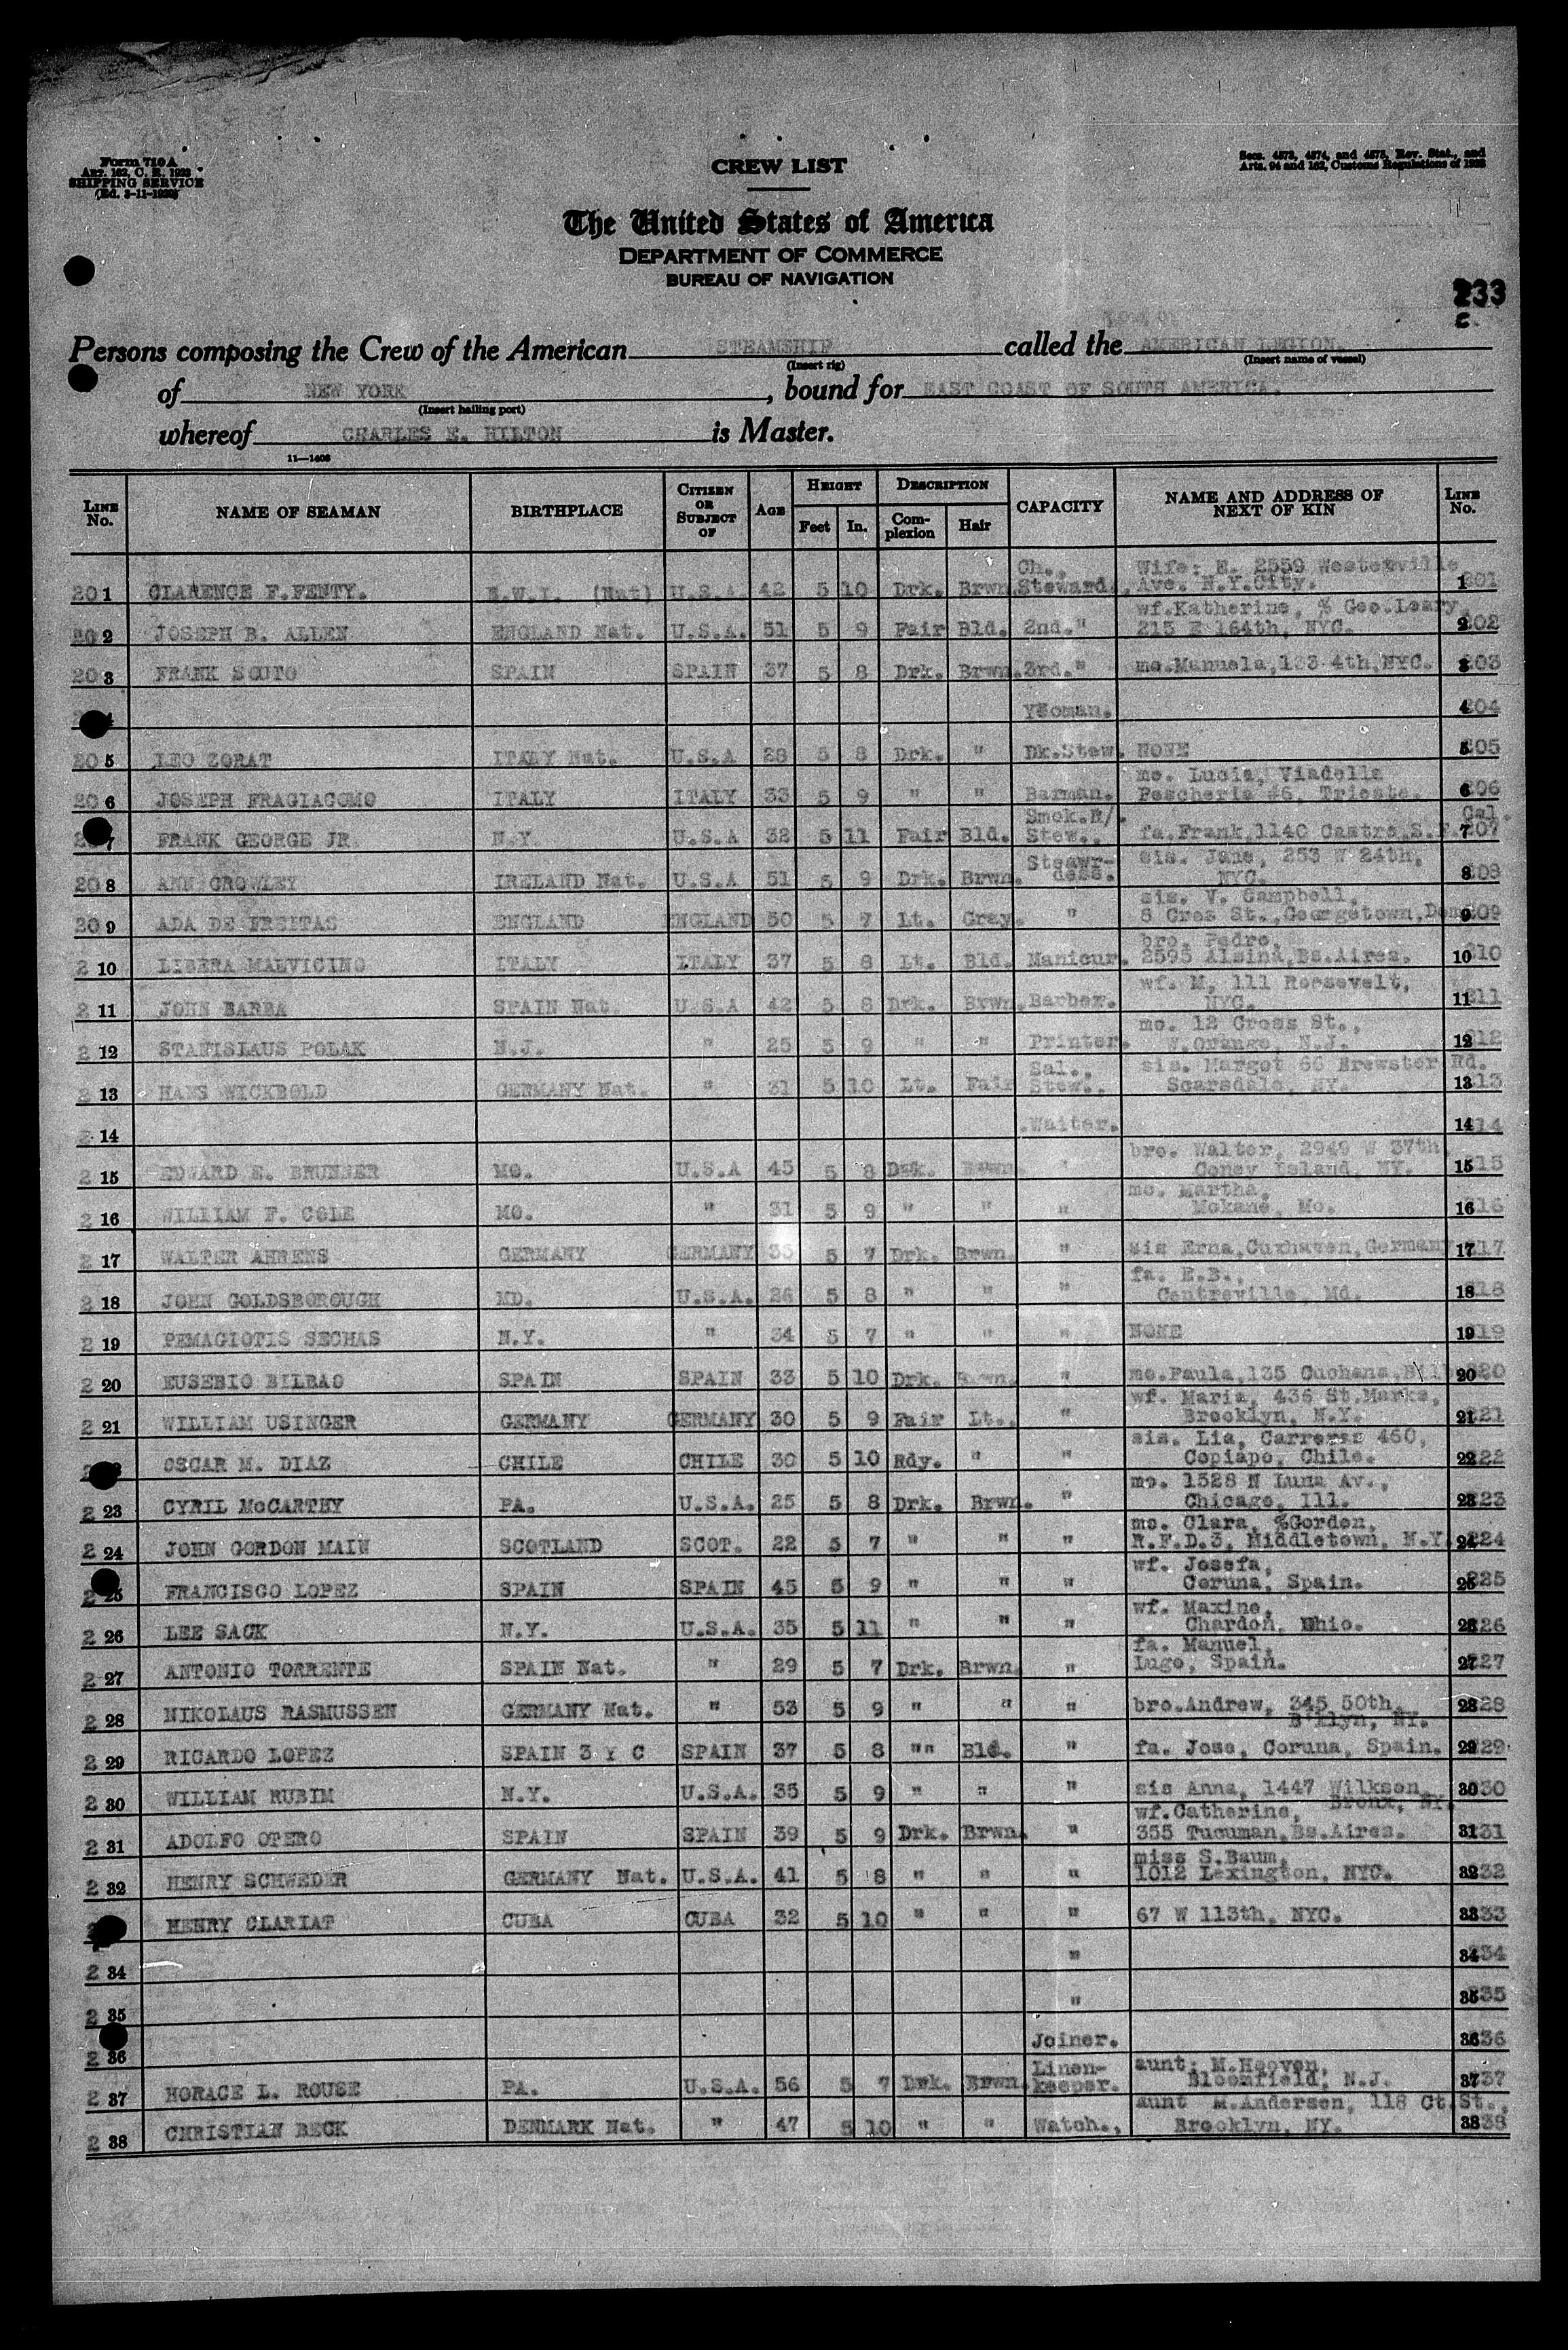 Form 710 A
Art. 162, C. R. 1923
SHIPPING SERVICE
(Ed. 3-11-1930)
CREW LIST
Secs. 4573, 4574, and 4575, Rev. Stat., and
Arts. 94 and 162, Customs Regulations of 1923
The United States of America
DEPARTMENT OF COMMERCE
BUREAU OF NAVIGATION
233
c
Persons composing the Crew of the American STEAMSHIP called the AMERICAN LEGION.
(Insert rig) (Insert name of vessel)
of NEW YORK, bound for EAST COAST OF SOUTH AMERICA.
(Insert hailing port)
whereof CHARLES E. HILTON is Master.
11—1403
LINE No. NAME OF SEAMAN BIRTHPLACE CITIZEN OR SUBJECT OF AGE HEIGHT Feet In. DESCRIPTION Complexion Hair CAPACITY NAME AND ADDRESS OF NEXT OF KIN LINE No.
201 CLARENCE F.FENTY. B.W.I. (Nat) U.S.A. 42 5 10 Drk. Brwn. Ch., Steward. Wife: E. 2559 Westerville Ave. N.Y.City. 1 201
202 JOSEPH B. ALLEN ENGLAND Nat. U.S.A. 51 5 9 Fair Bld. 2nd." wf.Katherine, % Geo.Leary, 215 E 164th, NYC. 2 202
203 FRANK SOUTO SPAIN SPAIN 37 5 8 Drk. Brwn. 3rd." mo.Manuela,133 4th,NYC. 3 203
4 Yeoman. 4 204
205 LEO ZORAT ITALY Nat. U.S.A 28 5 8 Drk. " Dk.Stew. NONE 5 205
206 JOSEPH FRAGIACOMO ITALY ITALY 33 5 9 " " Barman. mo. Lucia, Viadella Pescheria #6, Trieste. 6 206
207 FRANK GEORGE JR. N.Y. U.S.A 32 5 11 Fair Bld. Smok.R/. Stew., fa.Frank,1140 Castro,S.F. Cal. 7 207
208 ANN CROWLEY IRELAND Nat. U.S.A 51 5 9 Drk. Brwn. Steawr-dess. sis. Jane, 253 W 24th, NYC. 8 208
209 ADA DE FREITAS ENGLAND ENGLAND 50 5 7 Lt. Gray. " sis. V. Campbell, 8 Cros St.,Georgetown,Dem 9 209
2 10 LIBERA MALVICINO ITALY ITALY 37 5 8 Lt. Bld. Manicur. bro. Pedro, 2595 Alsina,Bs.Aires. 10 210
2 11 JOHN BARBA SPAIN Nat U.S.A 42 5 8 Drk. Brwn. Barber. wf. M, 111 Roosevelt, NYC. 11 211
2 12 STANISLAUS POLAK N.J. " 25 5 9 " " Printer. mo. 12 Cross St., W.Orange, N.J. 12 212
2 13 HANS WICKBOLD GERMANY Nat. " 31 5 10 Lt. Fair Sal., Stew., sis. Margot 66 Brewster Rd. Scarsdale, NY. 13 213
2 14 .Waiter. 14 214
2 15 EDWARD E. BRUNNER MO. U.S.A 45 5 8 Drk. Brwn. " bro. Walter, 2949 W 37th, Coney Island, NY. 15 215
2 16 WILLIAM F. COLE MO. " 31 5 9 " " " mo. Martha, Mokane, Mo. 16 216
2 17 WALTER AHRENS GERMANY GERMANY 5 7 Drk. Brwn. " sis Erna,Cuxhaven,Germany 17 217
2 18 JOHN GOLDSBOROUGH MD. U.S.A. 26 5 8 " " " fa. E.B., Centreville, Md. 18 218
2 19 PEMAGIOTIS SECHAS N.Y. " 34 5 7 " " " NONE 19 219
2 20 EUSEBIO BILBAO SPAIN SPAIN 33 5 10 Drk. Brwn. " mo.Paula,135 Cuchana, 20 220
2 21 WILLIAM USINGER GERMANY GERMANY 30 5 9 Fair Lt., " wf. Maria, 436 St.Marks, Brooklyn, N.Y. 21 221
2 OSCAR M. DIAZ CHILE CHILE 30 5 10 Rdy. " " sis. Lia, Carreras 460, Copiapo, Chile. 22 222
2 23 CYRIL McCARTHY PA. U.S.A. 25 5 8 Drk. Brwn. " mo. 1528 N Luna Av., Chicago, Ill. 23 223
2 24 JOHN GORDON MAIN SCOTLAND SCOT. 22 5 7 " " " mo. Clara, %Gordon, R.F.D.3, Middletown, N.Y. 24 224
2 25 FRANCISCO LOPEZ SPAIN SPAIN 45 5 9 " " " wf. Josefa, Coruna, Spain. 25 225
2 26 LEE SACK N.Y. U.S.A. 35 5 11 " " " wf. Maxine, Chardon, Ohio. 26 226
2 27 ANTONIO TORRENTE SPAIN Nat. " 29 5 7 Drk. Brwn. " fa. Manuel, Lugo, Spain. 27 227
2 28 NIKOLAUS RASMUSSEN GERMANY Nat. " 53 5 9 " " " bro.Andrew, 345 50th, B'klyn, NY. 28 228
2 29 RICARDO LOPEZ SPAIN 3 Y C SPAIN 37 5 8 "" Bld. " fa. Jose, Coruna, Spain. 29 229
2 30 WILLIAM RUBIM N.Y. U.S.A. 35 5 9 " " " sis Anna, 1447 Wilkson, Bronx, NY. 30 230
2 31 ADOLFO OTERO SPAIN SPAIN 39 5 9 Drk. Brwn. " wf.Catherine, 355 Tucuman,Bs.Aires. 31 231
2 32 HENRY SCHWEDER GERMANY Nat. U.S.A. 41 5 8 " " " miss S.Baum, 1012 Lexington, NYC. 32 232
HENRY CLARIAT CUBA CUBA 32 5 10 " " " 67 W 113th, NYC. 33 233
2 34 " 34 234
2 35 " 35 235
2 36 Joiner. 36 236
2 37 HORACE L. ROUSE PA. U.S.A. 56 5 7 Drk. Brwn. Linen-keeper. aunt: M.Hooven, Bloomfield, N.J. 37 237
2 38 CHRISTIAN BECK DENMARK Nat. " 47 5 10 " " Watch., aunt M.Andersen, 118 Ct.St., Brooklyn, NY. 38 238